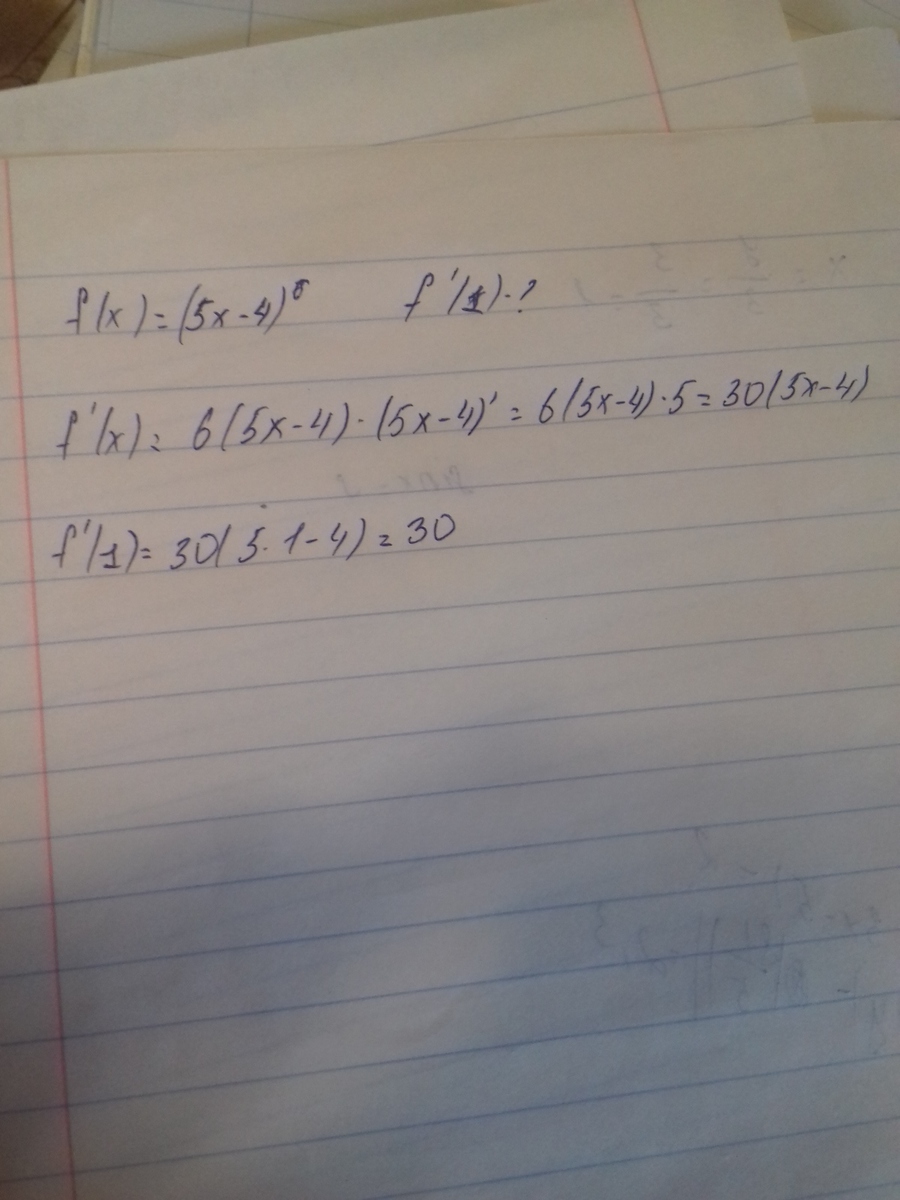 f(x) = (5x-4)⁶ f'(1)-?
f'(x) = 6(5x-4)·(5x-4)' = 6(5x-4)·5 = 30(5x-4)
f'(1) = 30(5·1-4) = 30